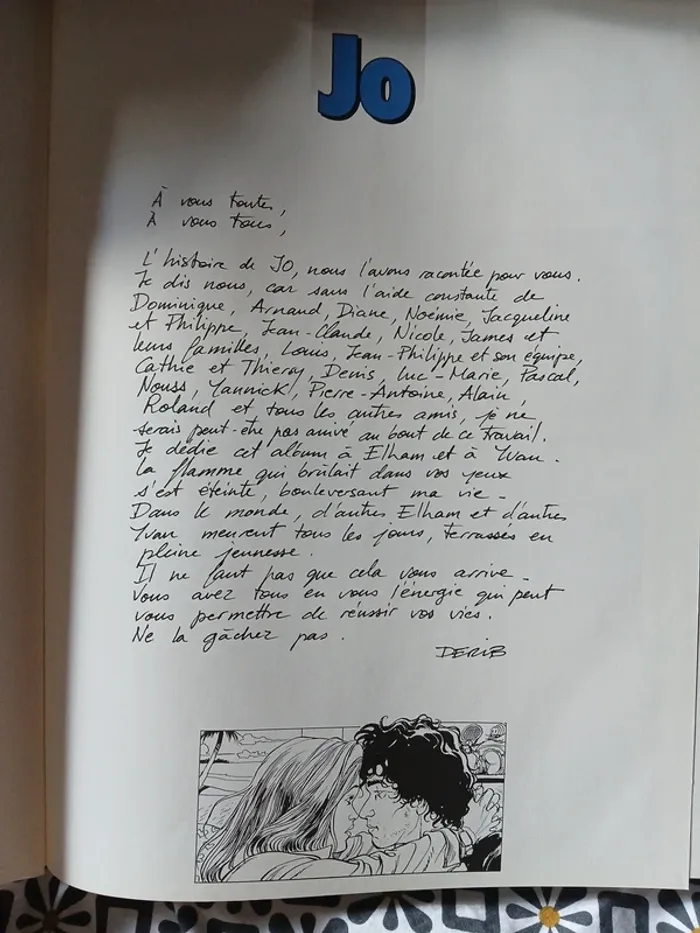 Jo
À vous toutes,
À vous tous,
L'histoire de JO, nous l'avons racontée pour vous.
Je dis nous, car sans l'aide constante de
Dominique, Arnaud, Diane, Noémie, Jacqueline
et Philippe, Jean-Claude, Nicole, James et
leurs familles, Louis, Jean-Philippe et son équipe,
Cathie et Thierry, Denis, Luc-Marie, Pascal,
Nouss, Yannick, Pierre-Antoine, Alain,
Roland et tous les autres amis, je ne
serais peut-être pas arrivé au bout de ce travail.
Je dédie cet album à Elham et à Yvan.
La flamme qui brûlait dans vos yeux
s'est éteinte, bouleversant ma vie.
Dans le monde, d'autres Elham et d'autres
Yvan meurent tous les jours, terrassés en
pleine jeunesse.
Il ne faut pas que cela vous arrive.
Vous avez tous en vous l'énergie qui peut
vous permettre de réussir vos vies.
Ne la gâchez pas.
DERIB